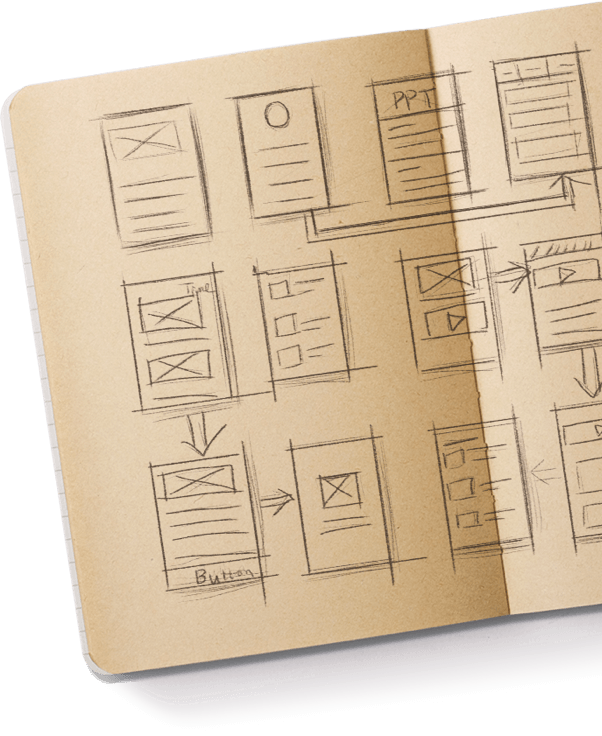 PPT
Time
Button